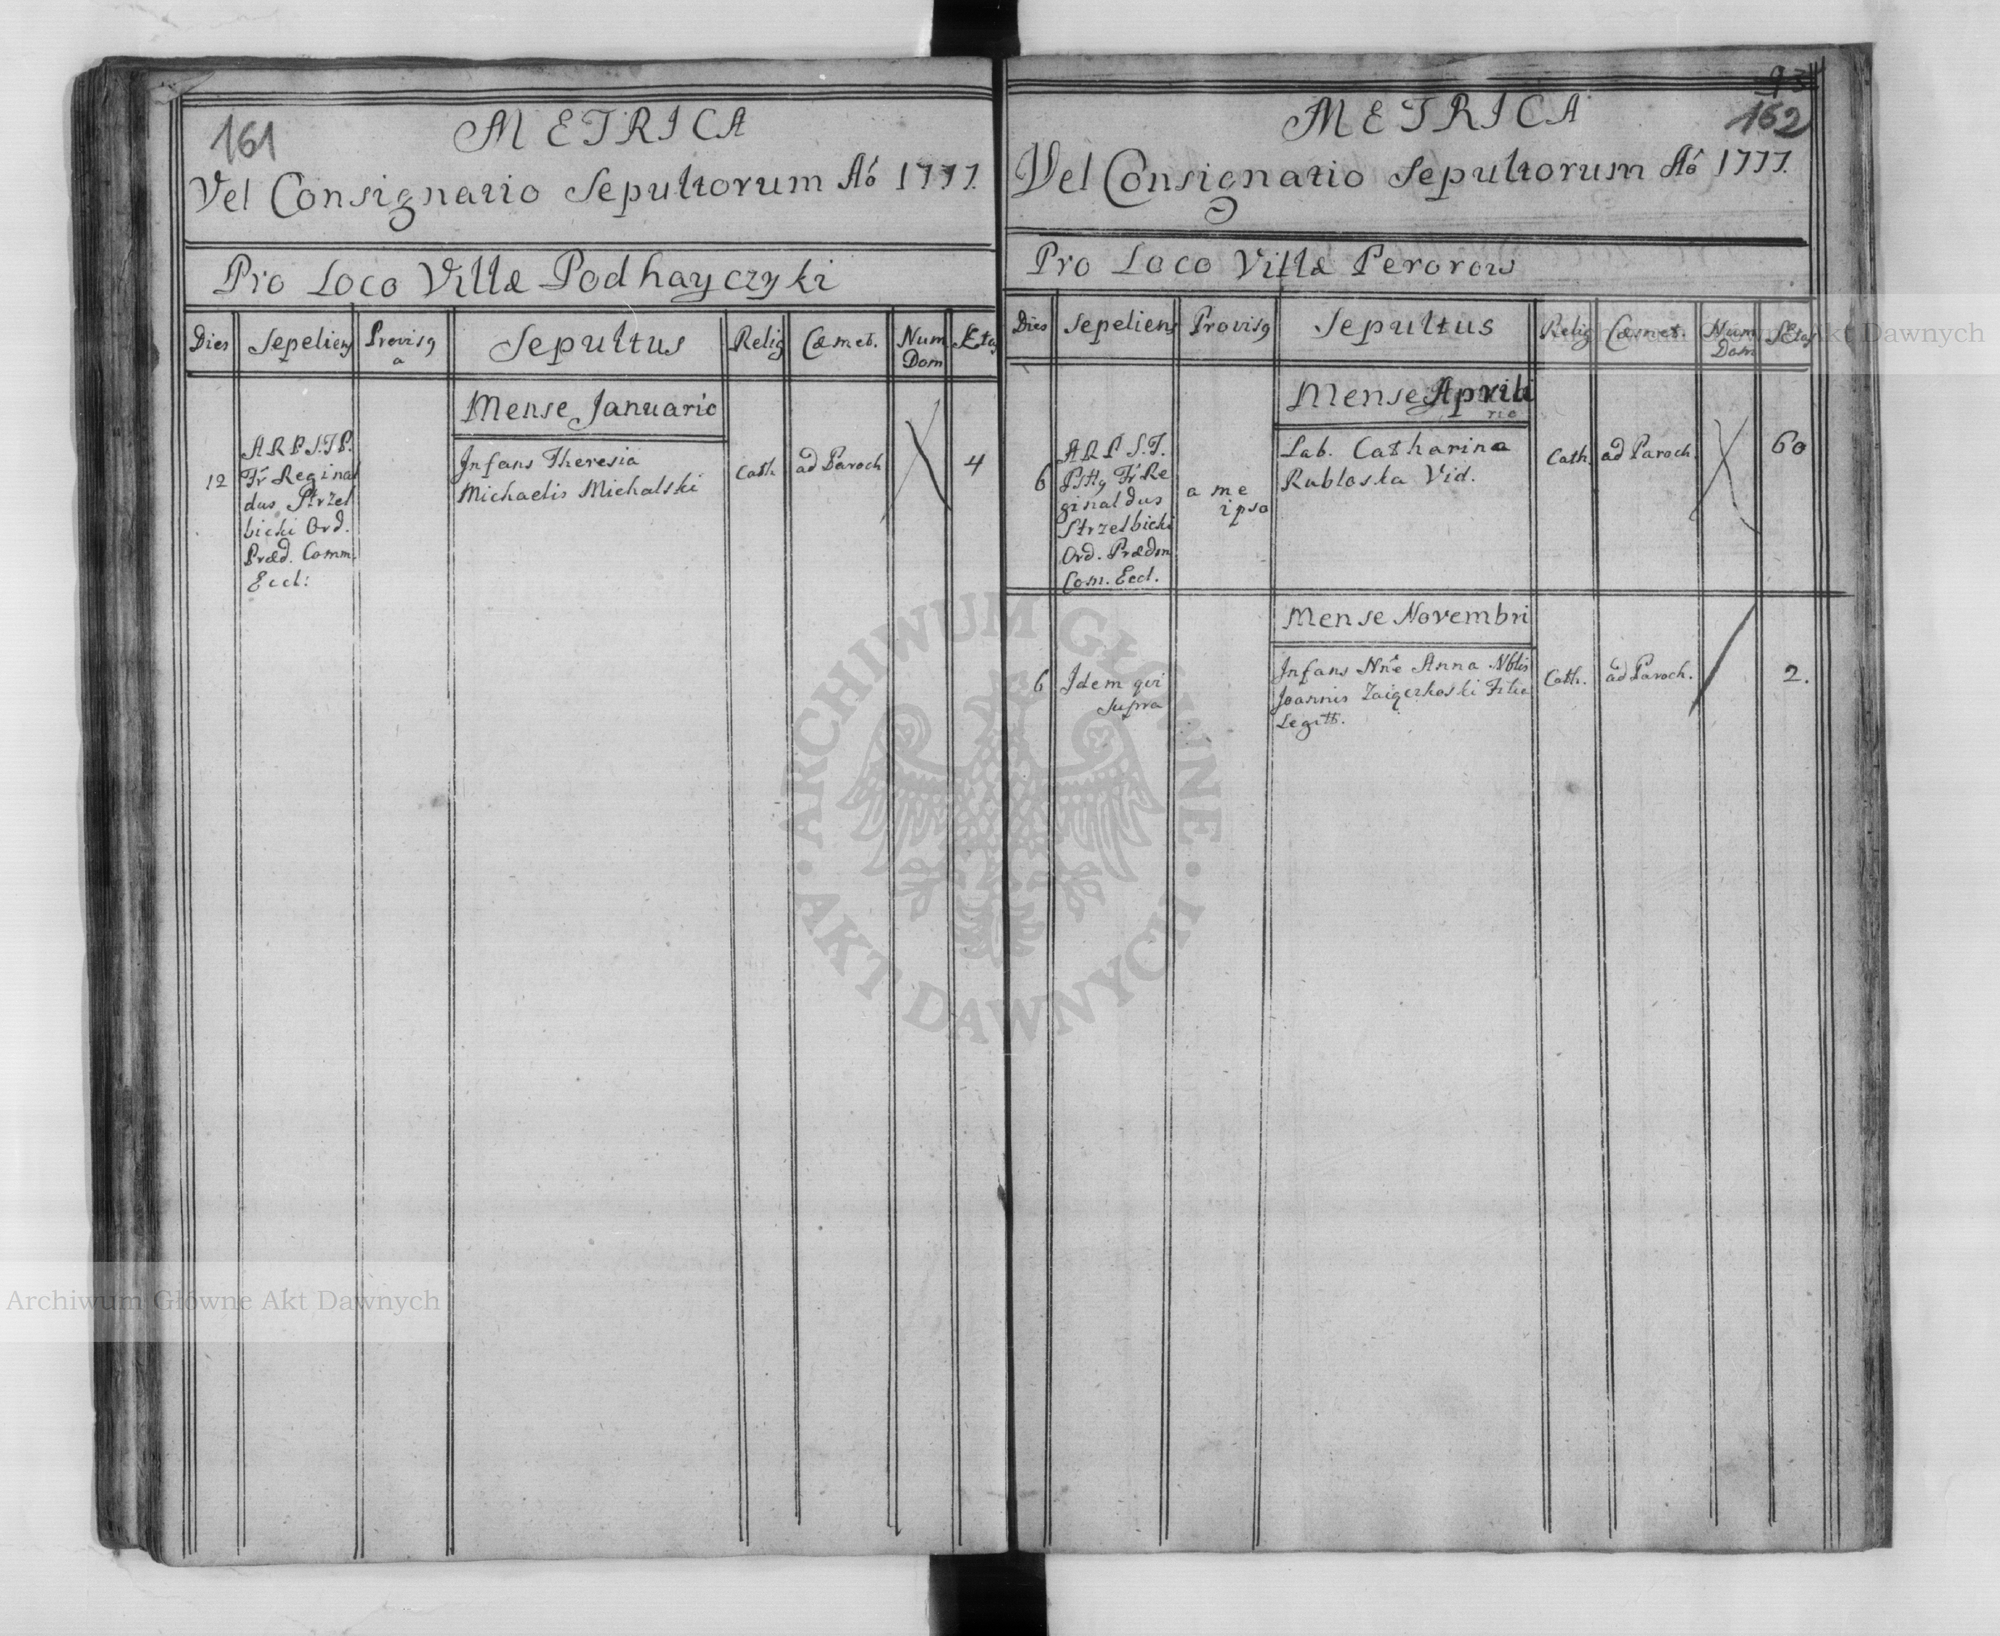 161
METRICA
Vel Consignatio Sepultorum Aó 1777.
Pro Loco Villæ Podhayczyki
Dies Sepeliens Provisq a Sepultus Relig Cæmet. Num Dom Ætas
Mense Januario
12
A R P S.T.P.
Fr Reginal
dus Strzel
bicki Ord.
Præd. Comm.
Eccl:
Infans Theresia
Michaelis Michalski
Cath.
ad Paroch
4
93
162
METRICA
Vel Consignatio Sepultorum Aó 1777.
Pro Loco Villæ Perorow
Dies Sepeliens Provisq Sepultus Relig Cæmet. Num Dom Ætas
Mense Aprili
6
A R P S.T.
Fr Re
ginaldus
Strzelbicki
Ord. Prædm
Com. Eccl.
a me
ipso
Lab. Catharina
Rubloska Vid.
Cath.
ad Paroch.
60
Mense Novembri
6
Idem qui
supra
Infans Nñe Anna Nblis
Joannis Filia
Legitt.
Cath.
ad Paroch.
2.
ARCHIWUM GŁÓWNE · AKT DAWNYCH ·
Archiwum Główne Akt Dawnych
Archiwum Główne Akt Dawnych